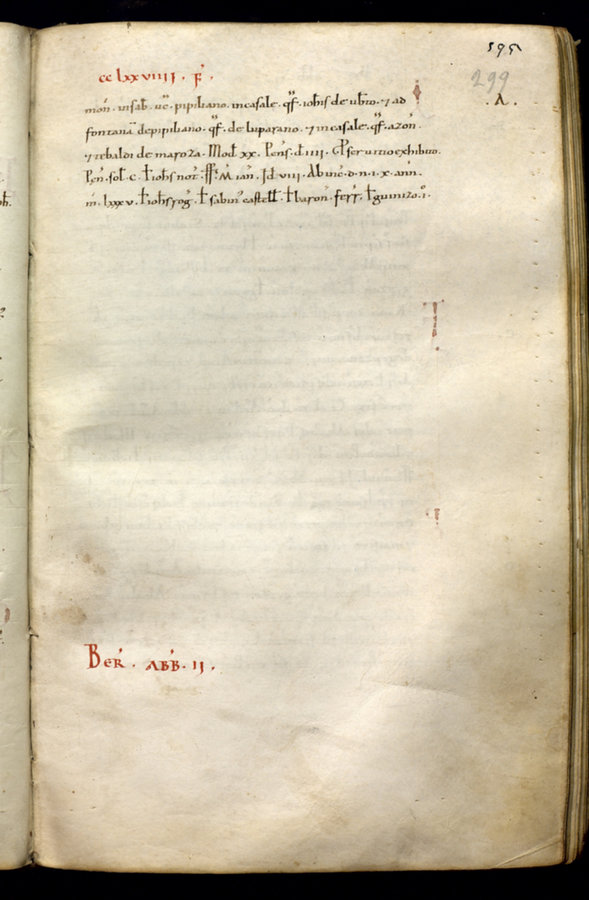 595
299
cclxxviiii. F.
.A.
mon. insab. ue. pipiliano. incasale. qsf. iohis de ubto. 7 ad
fontana depipiliano. qsf. de luparano. 7 incasale. qsf. azon.
7 tebaldi de maroza. Mod xx. Pens. d iiii. seruitio exhibito.
Pen. sol. c. iohs not. M ian. Id. viii. Ab inc. d. n. i. x. ann.
m. lxxxv. iohs rog. sabin castell. baron. ferr. guinizo. i.
Ber. ABB. II.